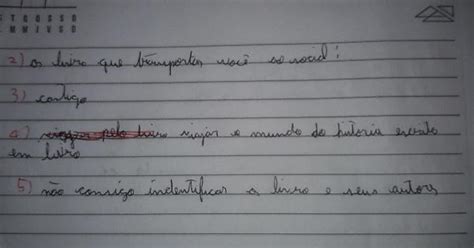 S T Q Q S S D
D M M J V S D
2) os livro que transportas você ao social:
3) contigo
4) viajar pelo livro viajar o mundo do historia escrito
em livro
5) não consigo indentificar os livro e seus autors